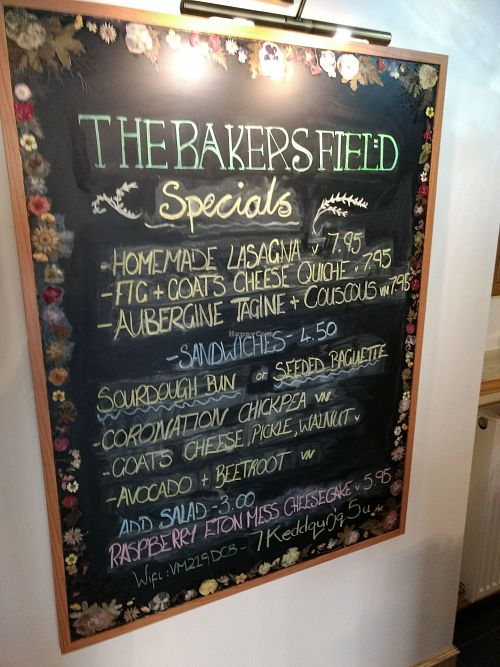 THE BAKERS FIELD
Specials
-HOMEMADE LASAGNA v 7.95
-FIG + GOATS CHEESE QUICHE v 7.95
-AUBERGINE TAGINE + COUSCOUS VN 7.95
-SANDWICHES- 4.50
SOURDOUGH BUN or SEEDED BAGUETTE
-CORONATION CHICKPEA VN
-GOATS CHEESE, PICKLE, WALNUT v
-AVOCADO + BEETROOT VN
ADD SALAD -3.00
RASPBERRY ETON MESS CHEESECAKE v 5.95
Wifi: VM219DCB -